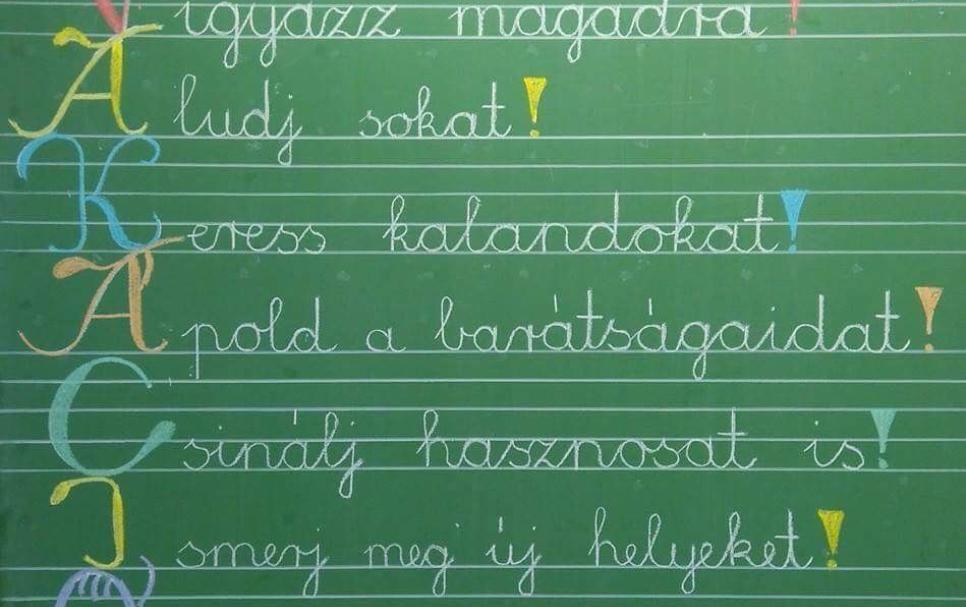 Vigyázz magadra!
Aludj sokat!
Keress kalandokat!
Ápold a barátságaidat!
Csinálj hasznosat is!
Ismerj meg új helyeket!